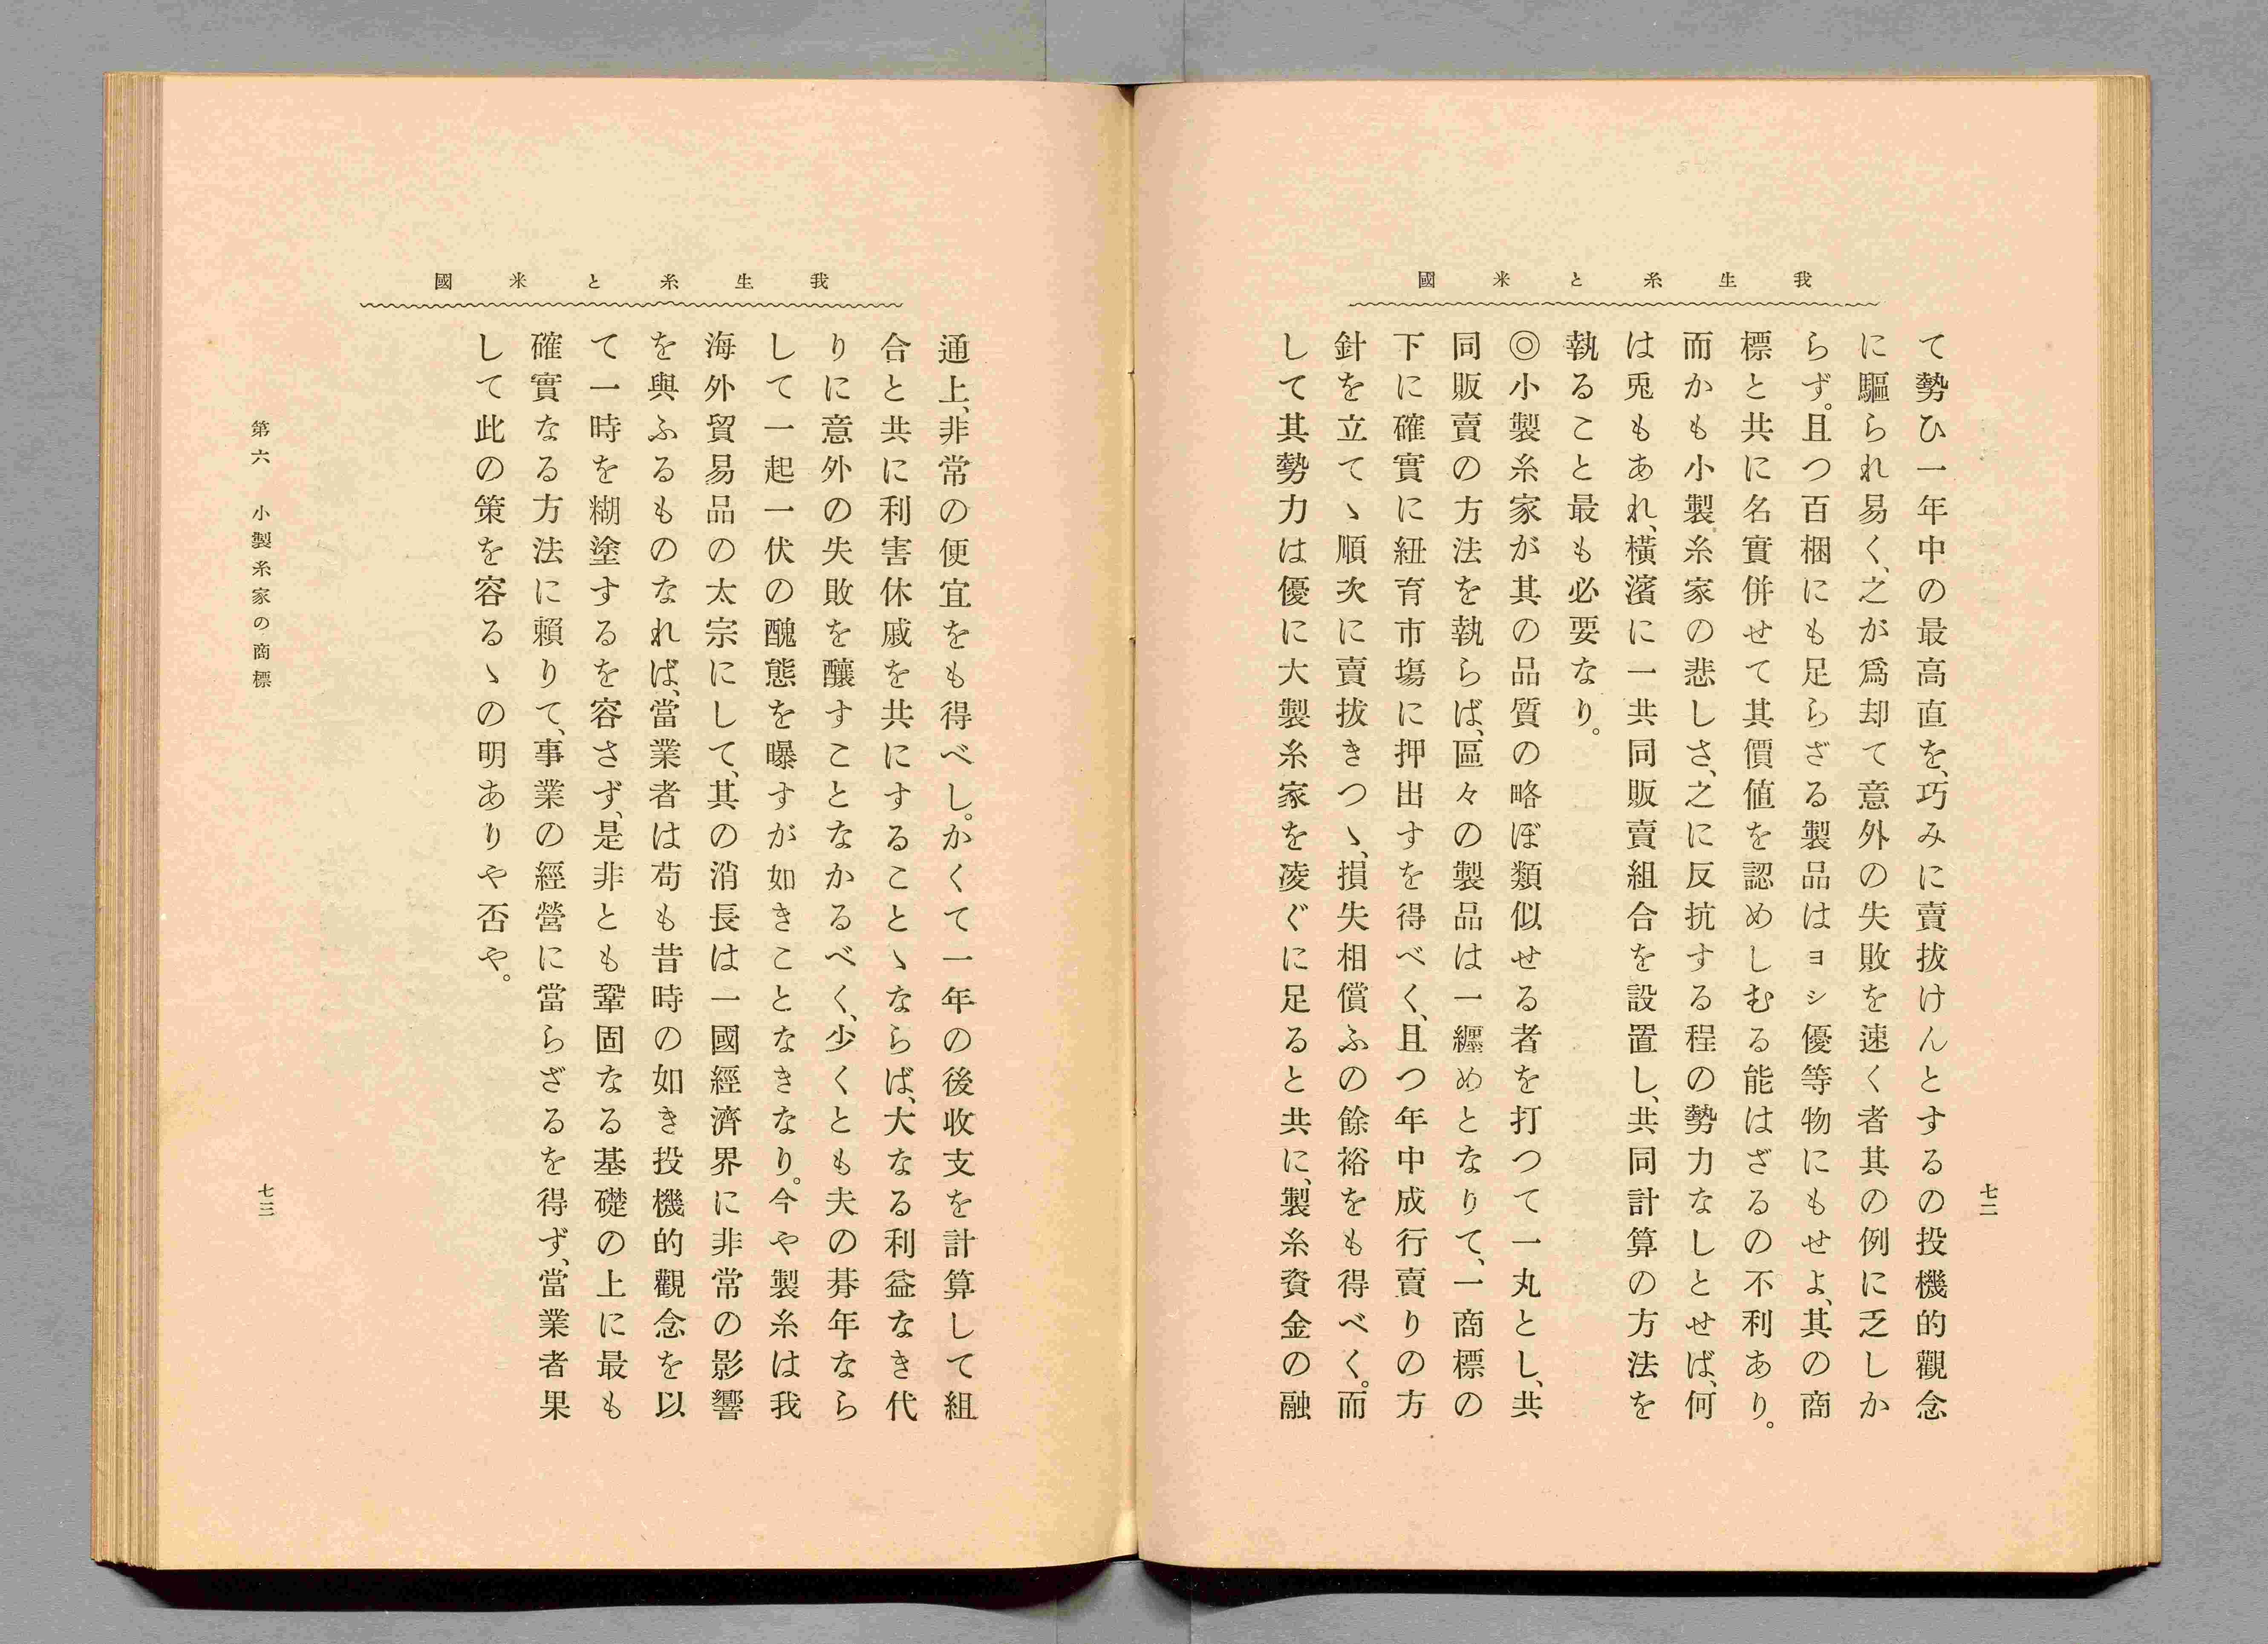 我生糸と米國
七二
て勢ひ一年中の最高直を、巧みに賣拔けんとするの投機的觀念
に驅られ易く、之が爲却て意外の失敗を速く者其の例に乏しか
らず。且つ百梱にも足らざる製品はヨシ優等物にもせよ、其の商
標と共に名實併せて其價値を認めしむる能はざるの不利あり。
而かも小製糸家の悲しさ、之に反抗する程の勢力なしとせば、何
は兎もあれ、橫濱に一共同販賣組合を設置し、共同計算の方法を
執ること最も必要なり。
◎小製糸家が其の品質の略ぼ類似せる者を打つて一丸とし、共
同販賣の方法を執らば、區々の製品は一纒めとなりて、一商標の
下に確實に紐育市塲に押出すを得べく、且つ年中成行賣りの方
針を立てゝ順次に賣拔きつゝ、損失相償ふの餘裕をも得べく。而
して其勢力は優に大製糸家を凌ぐに足ると共に、製糸資金の融
我生糸と米國
通上、非常の便宜をも得べし。かくて一年の後收支を計算して組
合と共に利害休戚を共にすることゝならば、大なる利益なき代
りに意外の失敗を釀すことなかるべく、少くとも夫の朞年なら
して一起一伏の醜態を曝すが如きことなきなり。今や製糸は我
海外貿易品の太宗にして、其の消長は一國經濟界に非常の影響
を與ふるものなれば、當業者は苟も昔時の如き投機的觀念を以
て一時を糊塗するを容さず、是非とも鞏固なる基礎の上に最も
確實なる方法に賴りて、事業の經營に當らざるを得ず、當業者果
して此の策を容るゝの明ありや否や。
第六 小製糸家の商標
七三